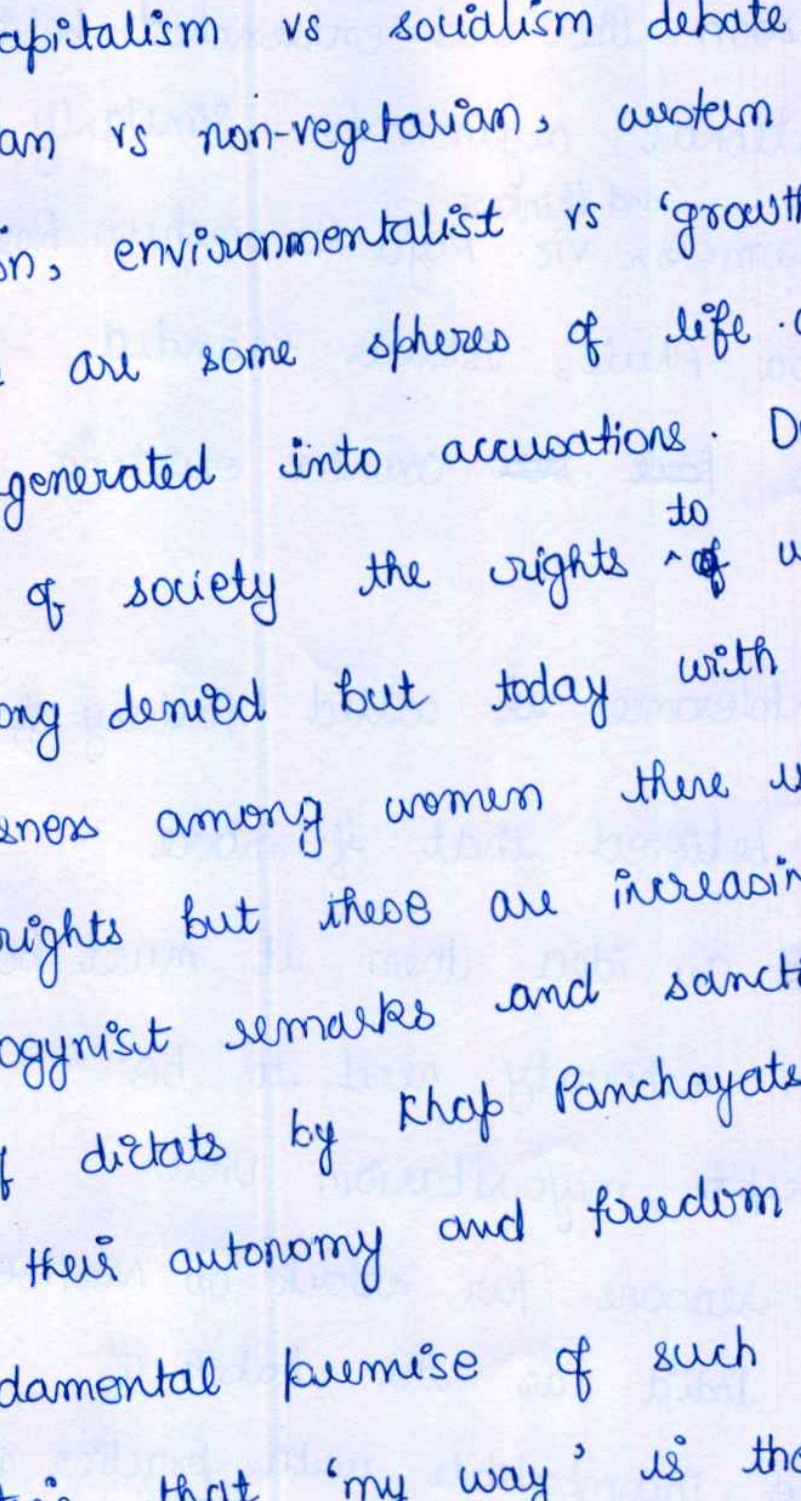 apitalism vs socialism debate
an vs non-vegetarian, western
on, environmentalist vs 'growth
are some spheres of life.
generated into accusations. D
to
of society the rights ^ of w
ong denied but today with
eness among women there is
rights but these are increasin
ogynist remarks and sancti
f dictats by Khap Panchayats
their autonomy and freedom
damental premise of such
that 'my way' is tha